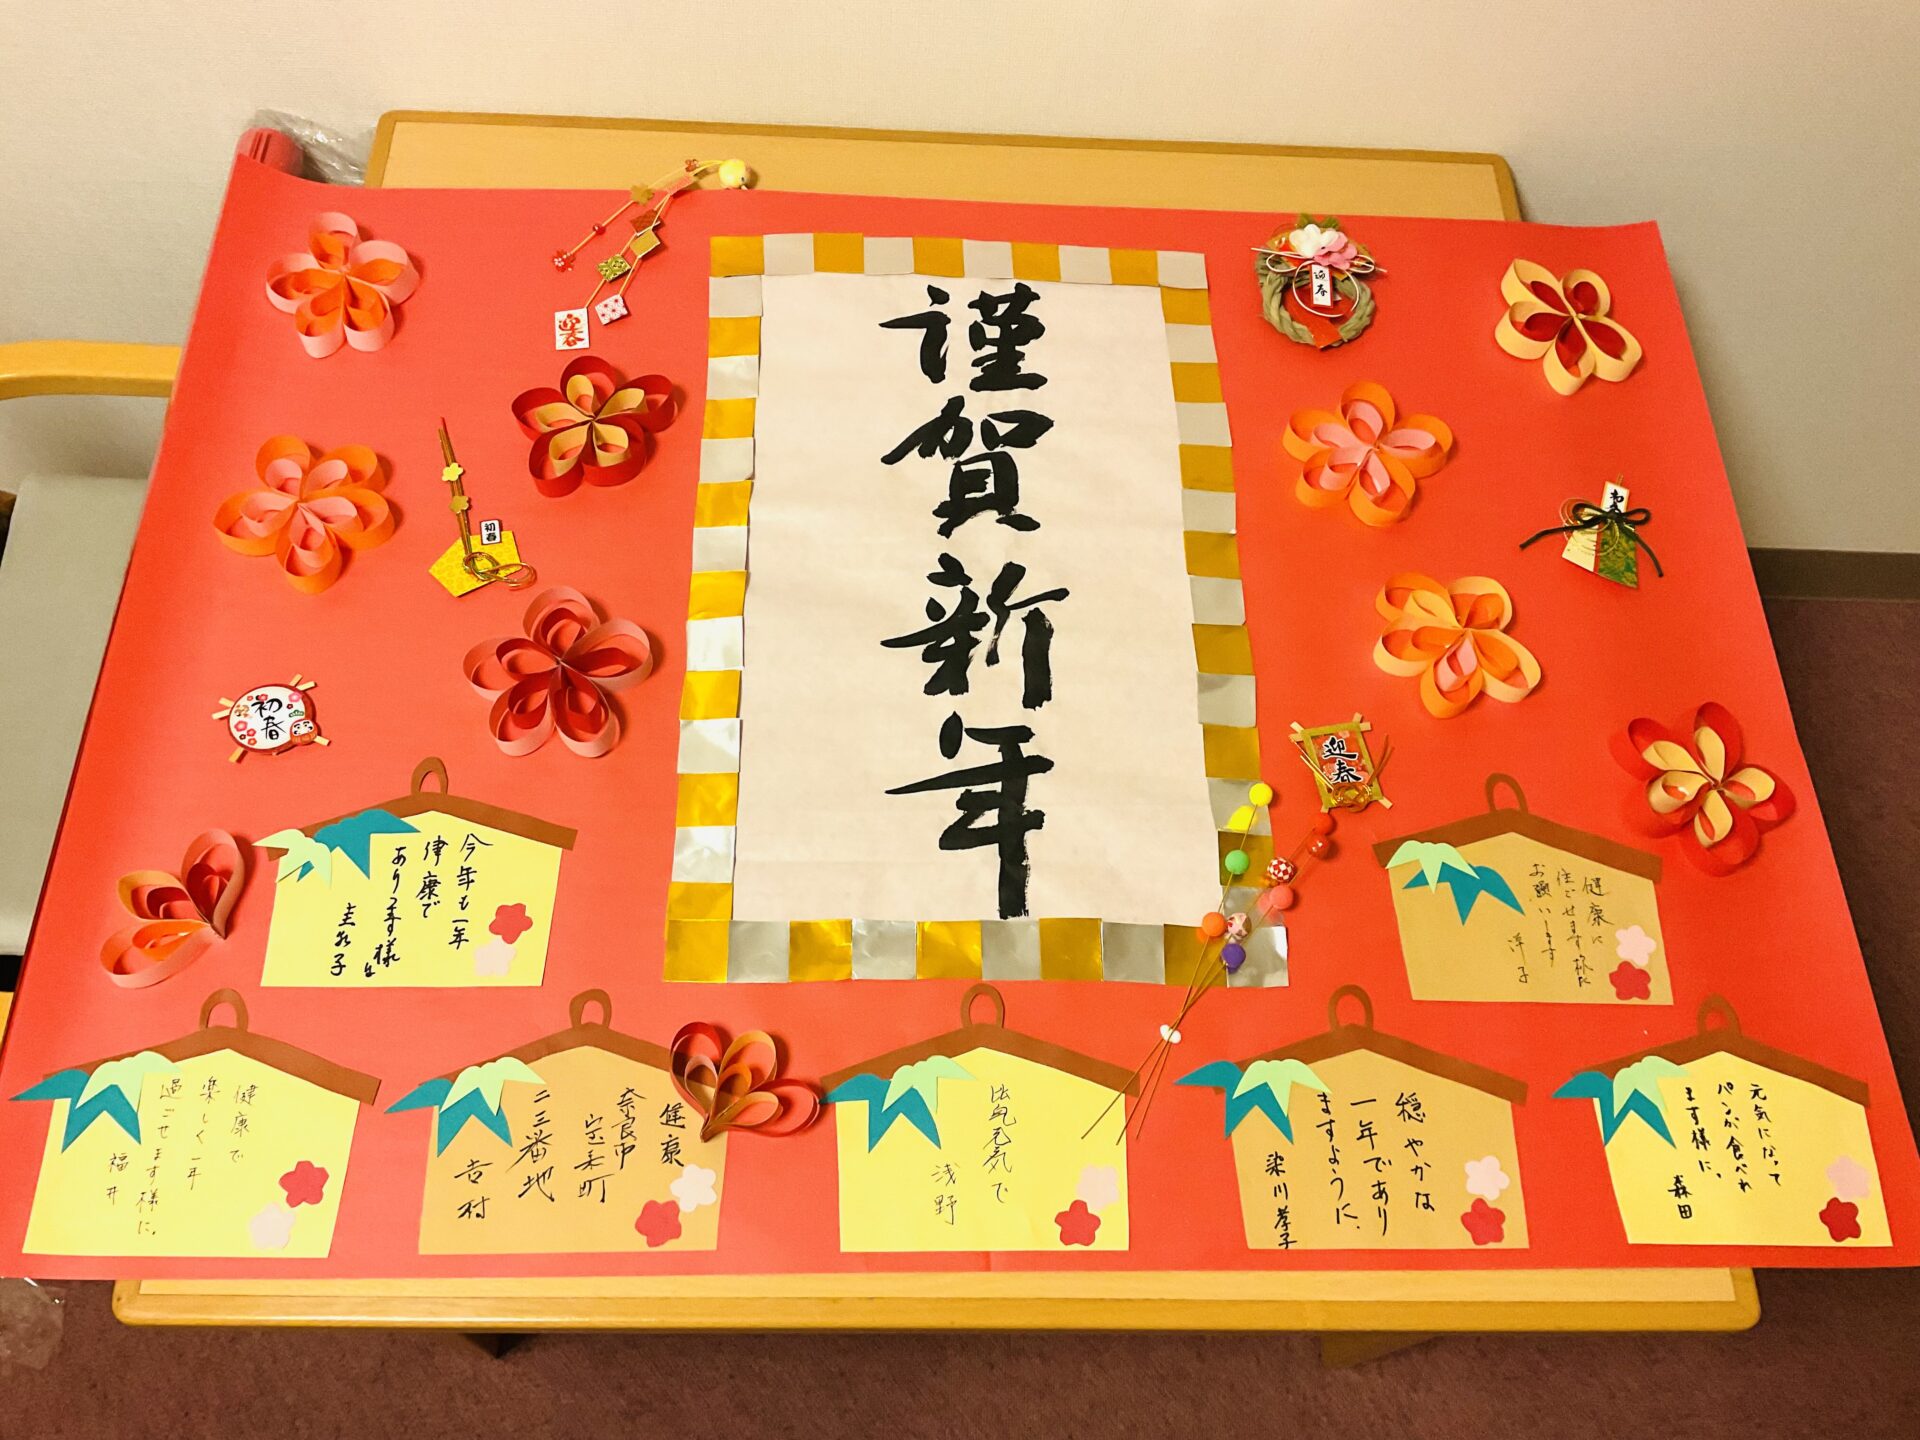 謹賀新年
迎春
迎春
初春
初春
迎春
今年も一年
健康で
あります様に
健康に
過ごせます様に
お願いします
洋子
健康で
楽しく一年
過ごせます様に。
福井
健康
奈良市
宝来町
二三番地
吉村
元気で
浅野
穏やかな
一年であり
ますように。
染川孝子
元気になって
パンが食べれ
ます様に。
森田